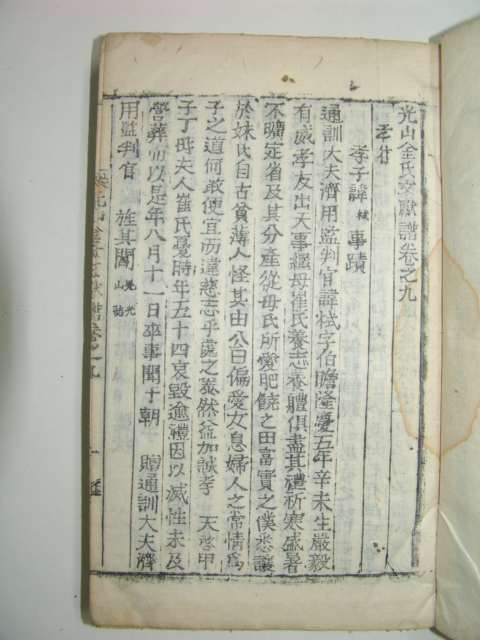 光山金氏文獻譜卷之九
孝行
孝子諱栻事蹟
通訓大夫濟用監判官諱栻字伯瞻隆慶五年辛未生嚴毅
有威孝友出天事繼母崔氏養志養軆俱盡其禮祈寒盛暑
不曠定省及其分產從母氏所愛肥饒之田富實之僕悉讓
於妹氏自占貧薄人怪其由公曰偏愛女息婦人之常情爲
子之道何敢便宜而違慈志乎處之泰然益加誠孝 天啓甲
子丁母夫人崔氏憂時年五十四哀毀逾禮因以滅性未及
營葬而以是年八月十一日卒事聞于朝 贈通訓大夫濟
用監判官 旌其閭 見光山誌
光山金氏文獻譜卷之九 一